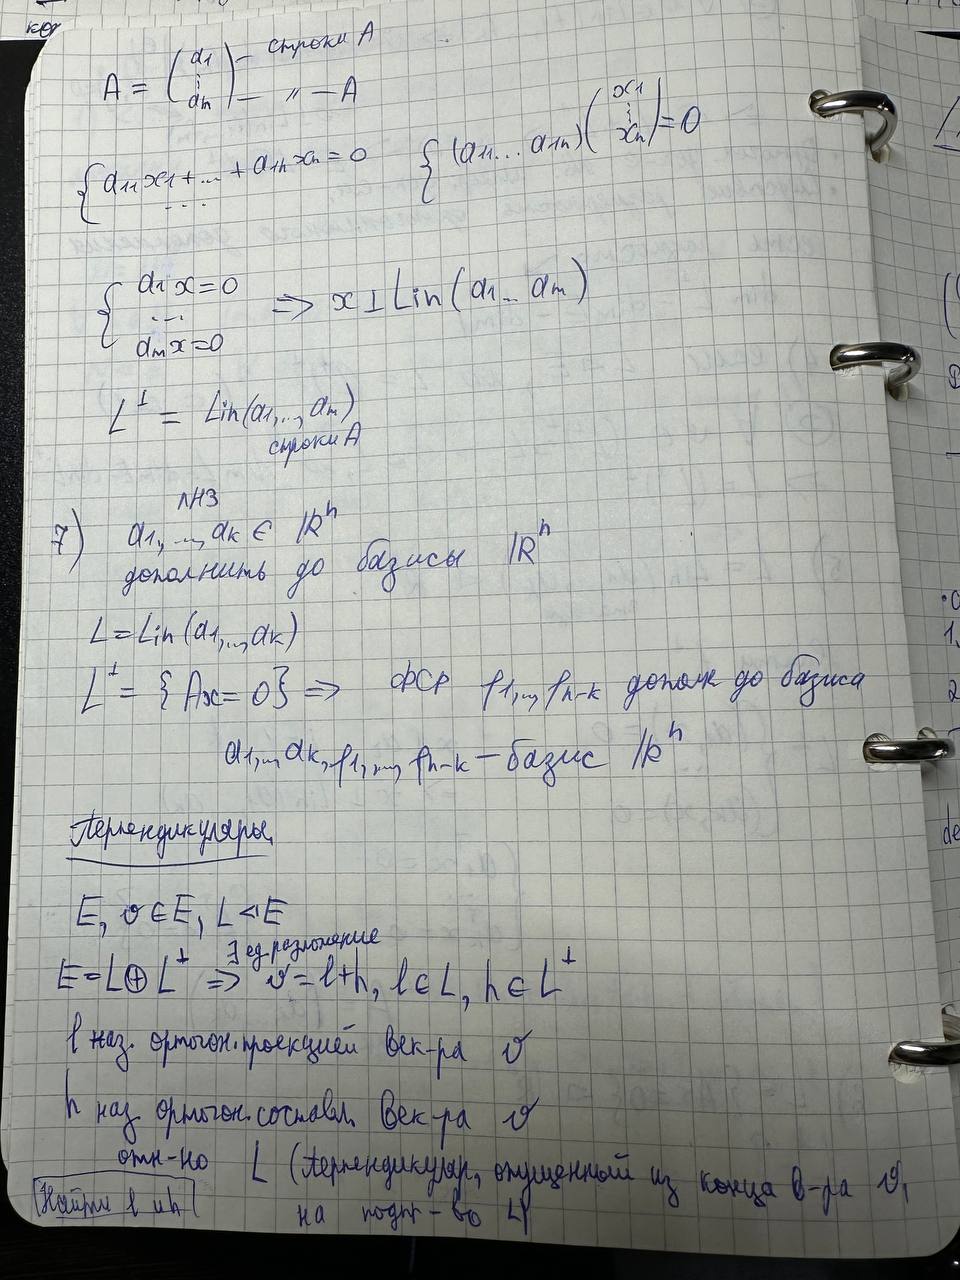 A = (a1 ⋮ am) — строки A
— 〃 — A
{ a11x1+...+a1nxn=0 { (a11...a1n)(x1 ⋮ xn)=0
...
{ a1x=0
...
amx=0 => x⊥Lin(a1...am)
L⊥ = Lin(a1,..., am)
строки A
ЛНЗ
7) a1,...,ak ∈ ℝⁿ
дополнить до базисы ℝⁿ
L=Lin(a1,..,ak)
L⊥= {Ax=0} => ФСР f1,.., fn-k дополн до базиса
a1,..,ak, f1,..., fn-k — базис ℝⁿ
Перпендикуляры
E, v∈E, L⊲E
∃ ед. разложение
E=L⊕L⊥ => v=l+h, l∈L, h∈L⊥
l наз. ортогон. проекцией век-ра v
h наз. ортогон. составл. век-ра v
отн-но L (перпендикуляр, опущенный из конца в-ра v,
на подпр-во L)
Найти l и h